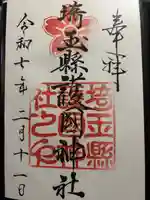 奉拝
埼玉縣護國神社
令和七年二月十一日
埼玉縣
社之印